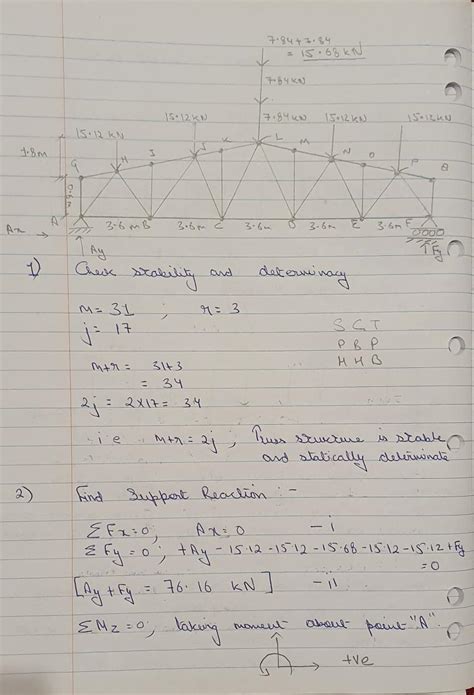 7.84+7.84
= 15.68 KN
7.84KN
15.12KN
7.84KN
15.12KN
15.12KN
15.12 KN
1.8m
G
H
I
J
K
L
M
N
O
P
Q
A
3.6m
B
3.6m
C
3.6m
D
3.6m
E
3.6m
F
Ax
Ay
Fy
1) Check stability and determinacy
m = 31 ; r = 3
j = 17
S G T
P B P
H H B
m+r = 31+3
= 34
2j = 2×17 = 34
i.e m+r = 2j ; Truss structure is stable
and statically determinate
2) Find Support Reaction :-
ΣFx=0, Ax=0 — i
ΣFy=0; +Ay -15.12-15.12-15.68-15.12-15.12+Fy
=0
[Ay+Fy = 76.16 KN] — ii
ΣMz=0, taking moment about point "A".
+ve